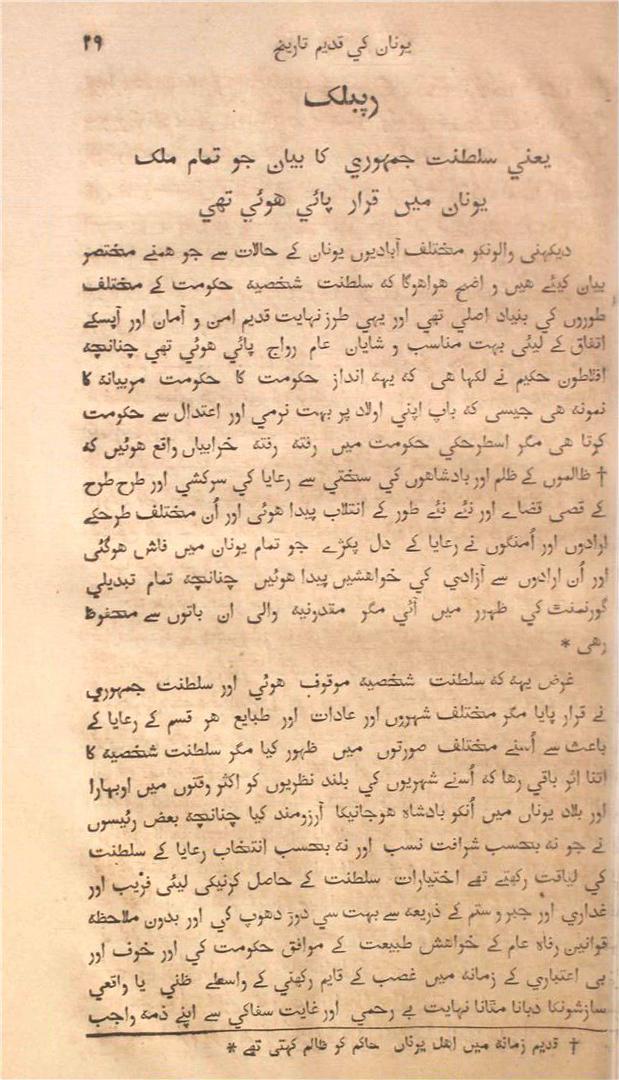 یونان کی قدیم تاریخ ۲۹
رپبلک
یعني سلطنت جمہوري کا بیان جو تمام ملک
یونان میں قرار پائي هوئي تهي
دیکهنی والونکو مختلف آبادیوں یونان کے حالات سے جو همنے مختصر
بیان کیئے هیں و اضح هواهوگا که سلطنت شخصیه حکومت کے مختلف
طوروں کي بنیاد اصلي تهي اور یهي طرز نهایت قدیم امن و آمان اور آپسکے
اتفاق کے لیئی بهت مناسب و شایان عام رواج پائي هوئي تهي چنانچه
افلاطون حکیم نے لکها هی که یهه انداز حکومت کا حکومت مربیانه کا
نمونه هی جیسی که باپ اپني اولاد پر بهت نرمي اور اعتدال سے حکومت
کرتا هی مگر اسطرحکي حکومت میں رفته رفته خرابیاں واقع هوئیں که
† ظالموں کے ظلم اور بادشاهوں کي سختي سے رعایا کي سرکشي اور طرح طرح
کے قصی قضاے اور نئے نئے طور کے انتلاب پیدا هوئي اور اُن مختلف طرحکے
ارادوں اور اُمنگوں نے رعایا کے دل پکڑے جو تمام یونان میں فاش هوگئی
اور اُن ارادوں سے آزادي کي خواهشیں پیدا هوئیں چنانچه تمام تبدیلي
گورنمنٹ کي ظهرر میں آئي مگر مقدونیه والی ان باتوں سے محفوظ
رهی *
غرض یهه که سلطنت شخصیه موقوف هوئي اور سلطنت جمهوري
نے قرار پایا مگر مختلف شهروں اور عادات اور طبایع هر قسم کے رعایا کے
باعث سے اُسنے مختلف صورتوں میں ظهور کیا مگر سلطنت شخصیه کا
اتنا اثر باقي رها که اُسنے شهریوں کي بلند نظریوں کو اکثر وقتوں میں اوبهارا
اور بلاد یوناں میں اُنکو بادشاه هوجانیکا آرزومند کیا چنانچه بعض رئیسوں
نے جو نه بحسب شرافت نسب اور نه بحسب انتخاب رعایا کے سلطنت
کي لیاقت رکهتے تهے اختیارات سلطنت کے حاصل کرنیکی لیئی فریب اور
غداري اور جبر و ستم کے ذریعه سے بهت سي دوڑ دهوپ کي اور بدون ملاحظه
قوانین رفاه عام کے خواهش طبیعت کے موافق حکومت کي اور خوف اور
بی اعتباري کے زمانه میں غصب کے قایم رکهنی کے واسطے ظني یا واقعي
سازشونکا دبانا مٹانا نهایت بے رحمي اور غایت سفاکي سے اپنے ذمه واجب
† قدیم زمانه میں اهل یوناں حاکم کو ظالم کهتی تهے *